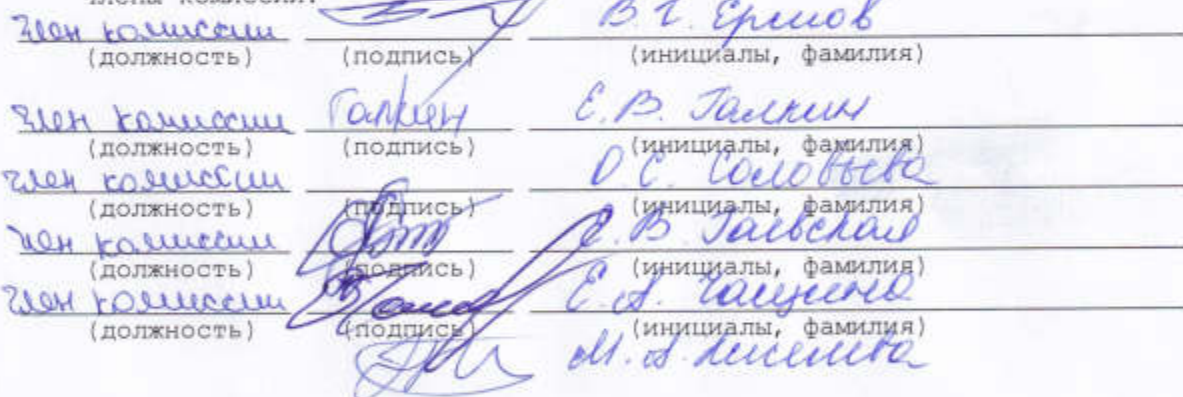 Члены комиссии:
член комиссии В. Г. Ермов
(должность) (подпись) (инициалы, фамилия)
член комиссии Галкин Е. В. Галкин
(должность) (подпись) (инициалы, фамилия)
член комиссии О. С. Соловьева
(должность) (подпись) (инициалы, фамилия)
член комиссии Е. В. Гаевская
(должность) (подпись) (инициалы, фамилия)
член комиссии Е. А.
(должность) (подпись) (инициалы, фамилия)
М. А. Киселева